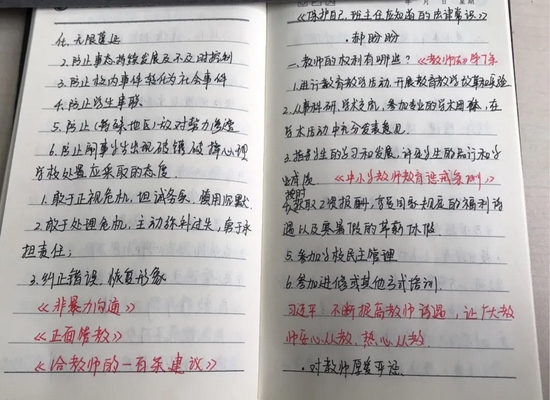 任、无限蔓延
2. 防止事态持续发展及不及时控制
3. 防止校内事件转化为社会事件
4. 防止学生串联
5. 防止(特殊地区)敌对势力渗透
6. 防止闹事学生出现破罐破摔心理
学校处置应采取的态度
1. 敢于正视危机,坦诚各家,慎用沉默.
2. 敢于处理危机,主动弥补过失,富于承
担责任;
3. 纠正错误,恢复形象
《非暴力沟通》
《正面管教》
《给教师的一百条建议》
《保护自己,班主任应知道的法律常识》
·郝盼盼
一. 教师的权利有哪些? 《教师法》第7条
1. 进行教育教学活动,开展教育教学改革和实验
2. 从事科研、学术交流,参加专业的学术团体,在
学术活动中充分发表意见
3. 指导学生的学习和发展,评定学生的品行和学
业成绩 《中小学教师教育惩戒条例》
按时
4. 获取工资报酬,享受国家规定的福利待
遇以及寒暑假的带薪休假
5. 参加学校民主管理
6. 参加进修或其他方式培训.
习近平:不断提高教师待遇,让广大教
师安心从教,热心从教
·对教师厚爱